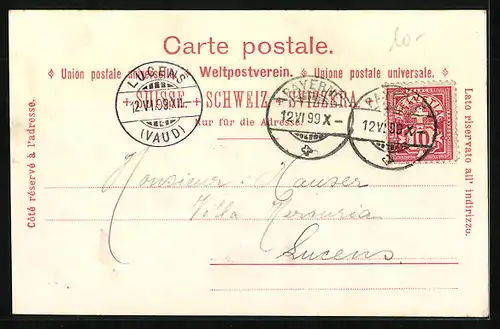 10-
Carte postale.
Union postale universelle. Weltpostverein. Unione postale universale.
SUISSE SCHWEIZ SVIZZERA
Nur für die Adresse.
Côté réservé à l'adresse.
Lato riservato all' indirizzo.
LUCENS
12.VI.99.XII-
(VAUD)
PAYERNE
12.VI.99 X-
PAYERNE
12.VI.99 X-
10
Monsieur Hauser
Villa Mercuria
Lucens